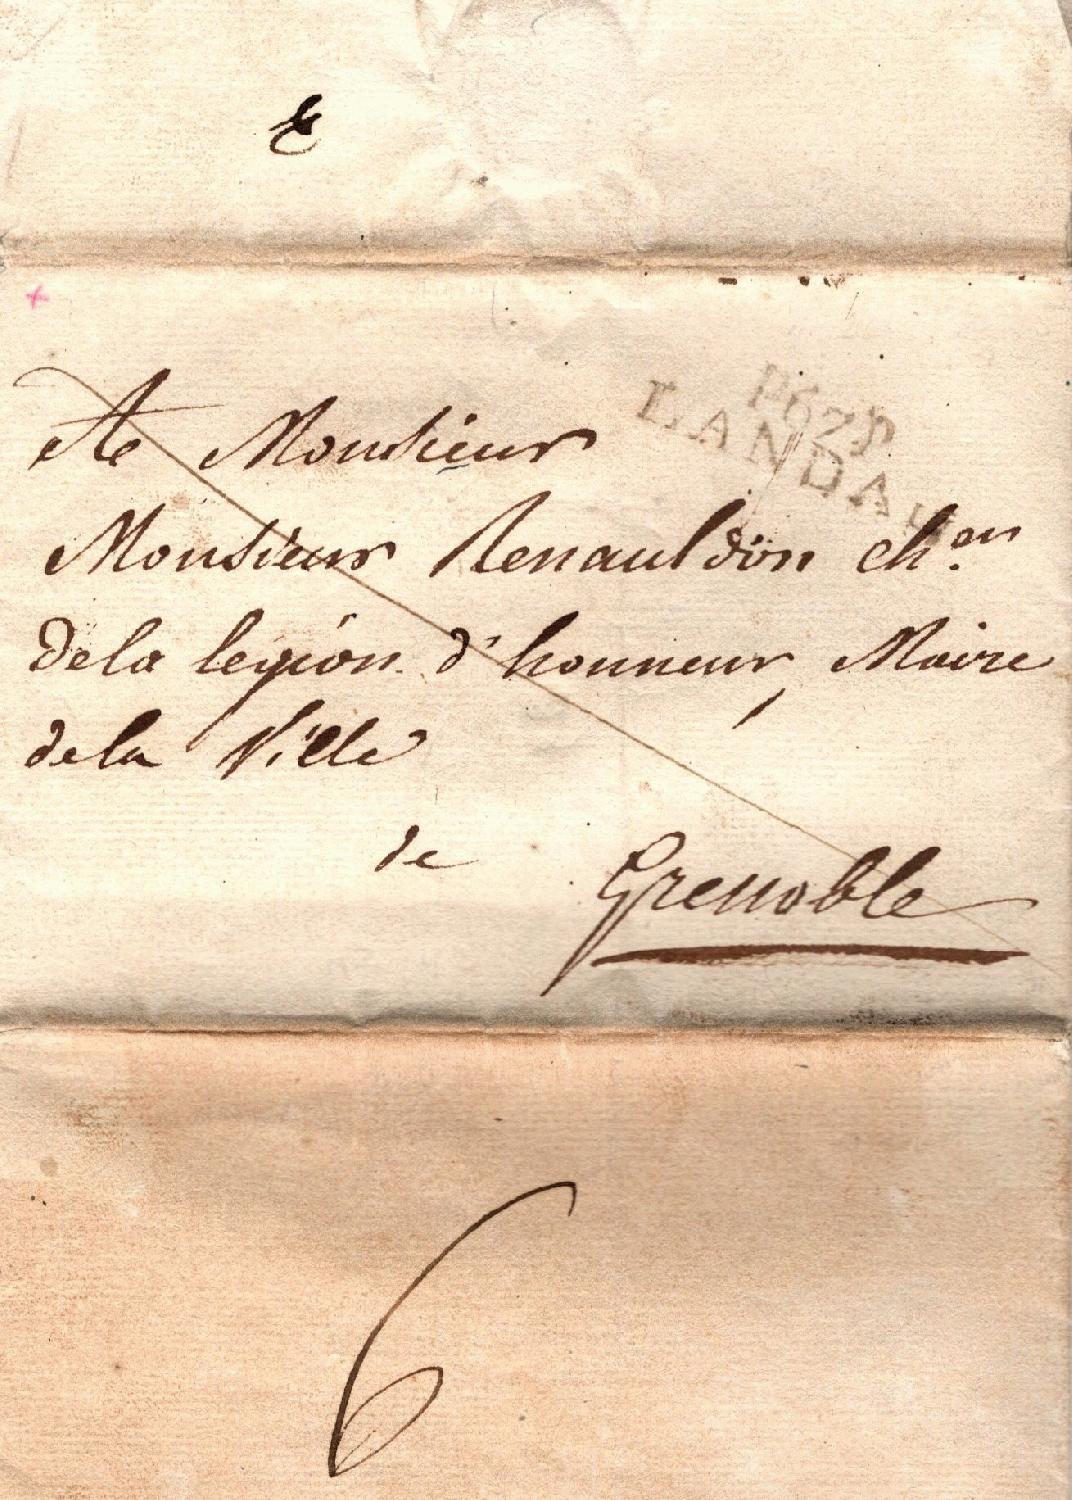 P67P
LANDAU
A Monsieur
Monsieur Renauldon ch.en
de la legion d'honneur, Maire
de la Ville
de Grenoble
6